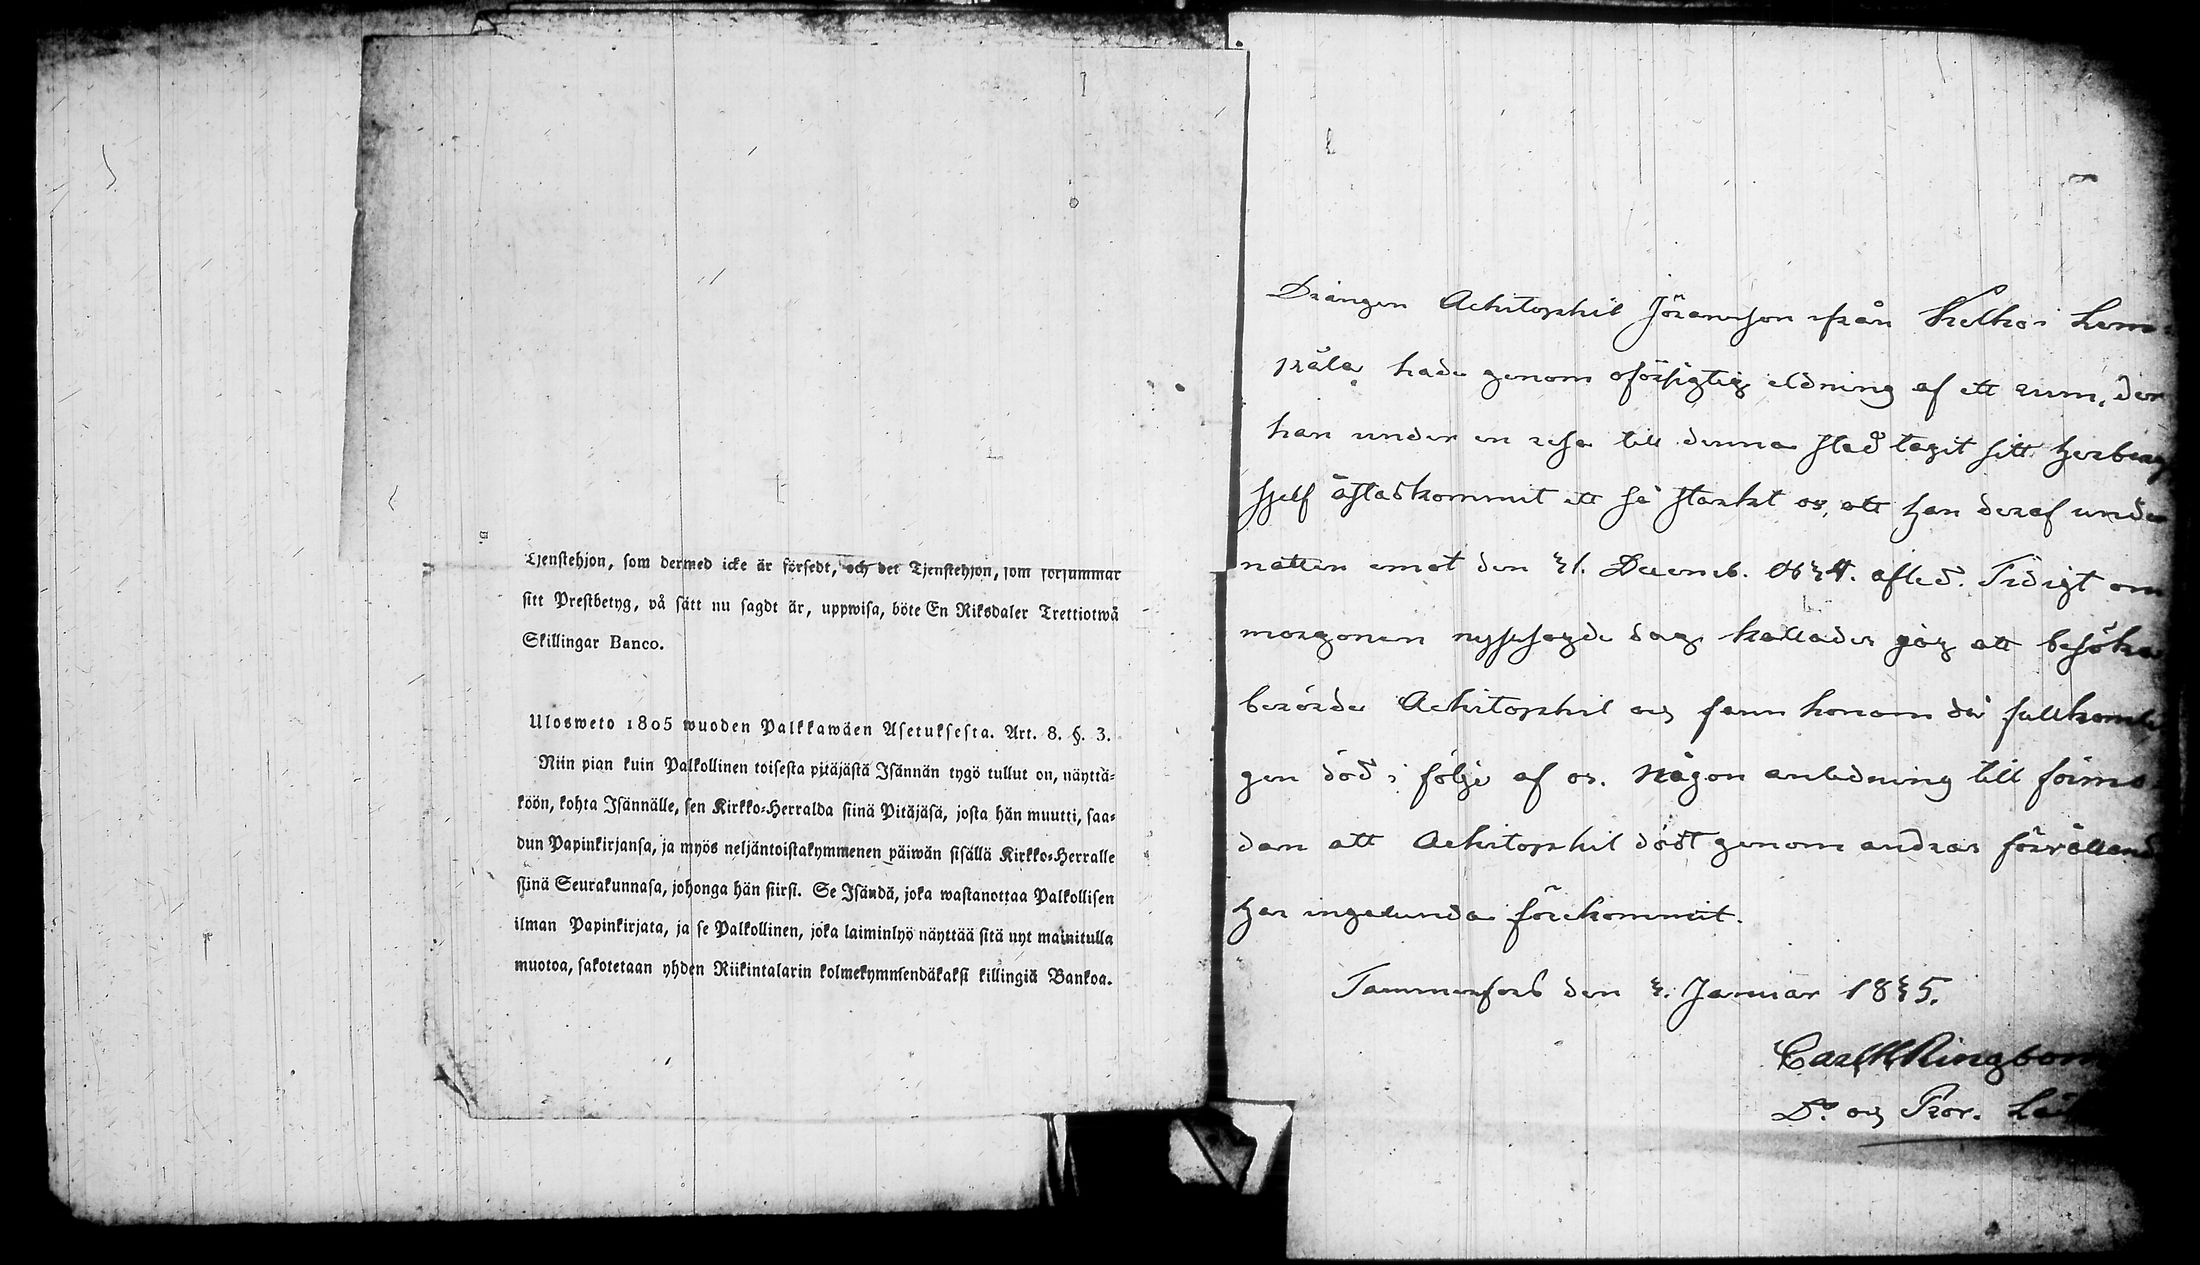 Tjenstehjon, som dermed icke är försedt, och det Tjenstehjon, som försummar
sitt Prestbetyg, på sätt nu sagdt är, uppwisa, böte En Riksdaler Trettiotwå
Skillingar Banco.
Ulosweto 1805 wuoden Palkkawäen Asetuksesta. Art. 8. §. 3.
Niin pian kuin Palkollinen toisesta pitäjästä Isännän tygö tullut on, näyttä-
köön, kohta Isännälle, sen Kirkko-Herralda siinä Pitäjäsä, josta hän muutti, saa-
dun Papinkirjansa, ja myös neljäntoistakymmenen päiwän sisällä Kirkko-Herralle
siinä Seurakunnasa, johonga hän siirsi. Se Isändä, joka wastanottaa Palkollisen
ilman Papinkirjata, ja se Palkollinen, joka laiminlyö näyttää sitä nyt mainitulla
muotoa, sakotetaan yhden Riikintalarin kolmekymnsendäkaksi killingiä Bankoa.
Drängen Achitophil Jöransson ifrån i Lem-
päla, hade genom oförsigtig eldning af ett rum, der
han under en resa till denna stad tagit sitt herberg
sjelf åstadkommit ett så starkt os, att han deraf under
natten emot den 21. Decemb. 1824. afled. Tidigt om
morgonen nyssagde dag kallades jag att besöka
berörde Achitophil och fann honom då fullkomli-
gen död i följe af os. Någon anledning till förmo-
dan att Achitophil dödt genom andras förvålland
har ingalunda förekommit.
Tammerfors den 2. Januar 1825.
Carl Ringbom
Dr och Prov. Läk